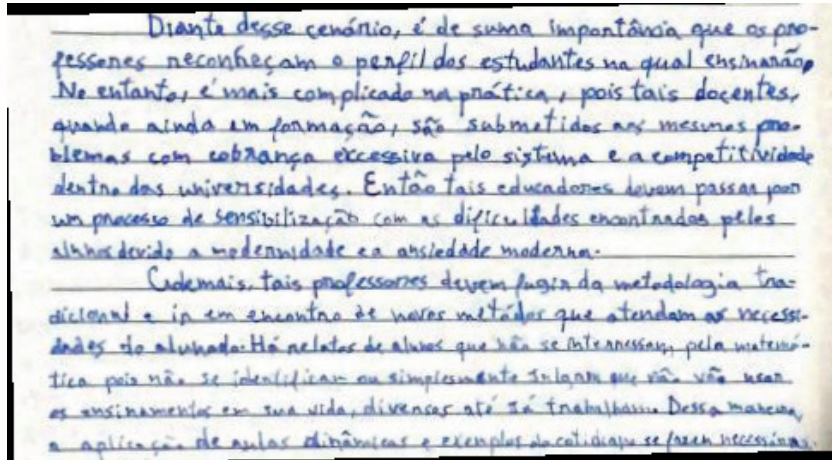 Diante desse cenário, é de suma importância que os pro-
fessores reconheçam o perfil dos estudantes na qual ensinarão.
No entanto, é mais complicado na prática, pois tais docentes,
quando ainda em formação, são submetidos aos mesmos pro-
blemas com cobrança excessiva pelo sistema e a competitividade
dentro das universidades. Então tais educadores devem passar por
um processo de sensibilização com as dificuldades encontradas pelos
alunos devido a modernidade e a ansiedade moderna.
Ademais, tais professores devem fugir da metodologia tra-
dicional e ir em encontro de novos métodos que atendam as necessi-
dades do alunado. Há relatos de alunos que não se interessam, pela matemá-
tica pois não se identificam ou simplesmente julgam que não vão usar
os ensinamentos em sua vida, diversos até já trabalham. Dessa maneira,
a aplicação de aulas dinâmicas e exemplos do cotidiano se fazem necessárias.